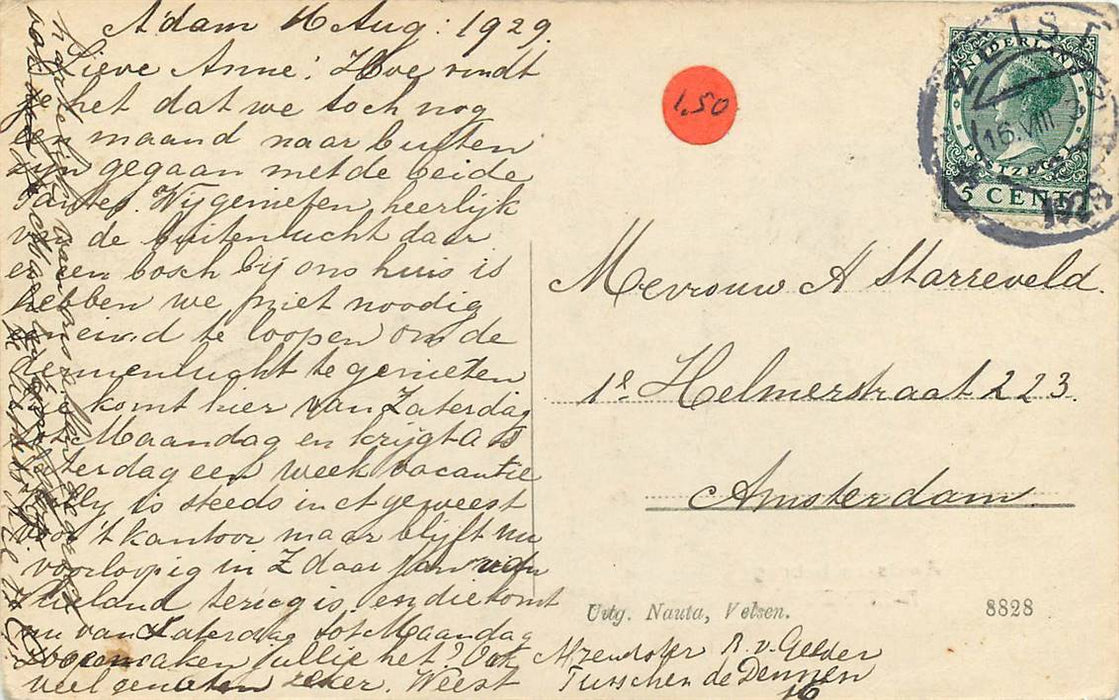 A'dam 16 Aug: 1929.
Lieve Anne! Hoe vindt
je het dat we toch nog
een maand naar buiten
zijn gegaan met de beide
Tantes. Wij genieten heerlijk
van de buitenlucht daar
er een bosch bij ons huis is
hebben we niet noodig
een eind te loopen om de
dennenlucht te genieten
komt hier van Zaterdag
tot Maandag en krijgt A S
Zaterdag een week vacantie
is steeds in ct geweest
voor 't kantoor maar blijft nu
voorloopig in Z daar Jan van
Vlieland terug is, en die komt
nu van Zaterdag tot Maandag
maken jullie het? Ook
veel genoten zeker. Weest
1.50
NEDERLAND
POSTZEGEL
5 CENT
ZEIST
16.VIII
192
Mevrouw A Starreveld.
1e Helmerstraat 223.
Amsterdam
Uitg. Nauta, Velsen.
8828
Afzendster R. v. Gelder
Tusschen de Dennen
16